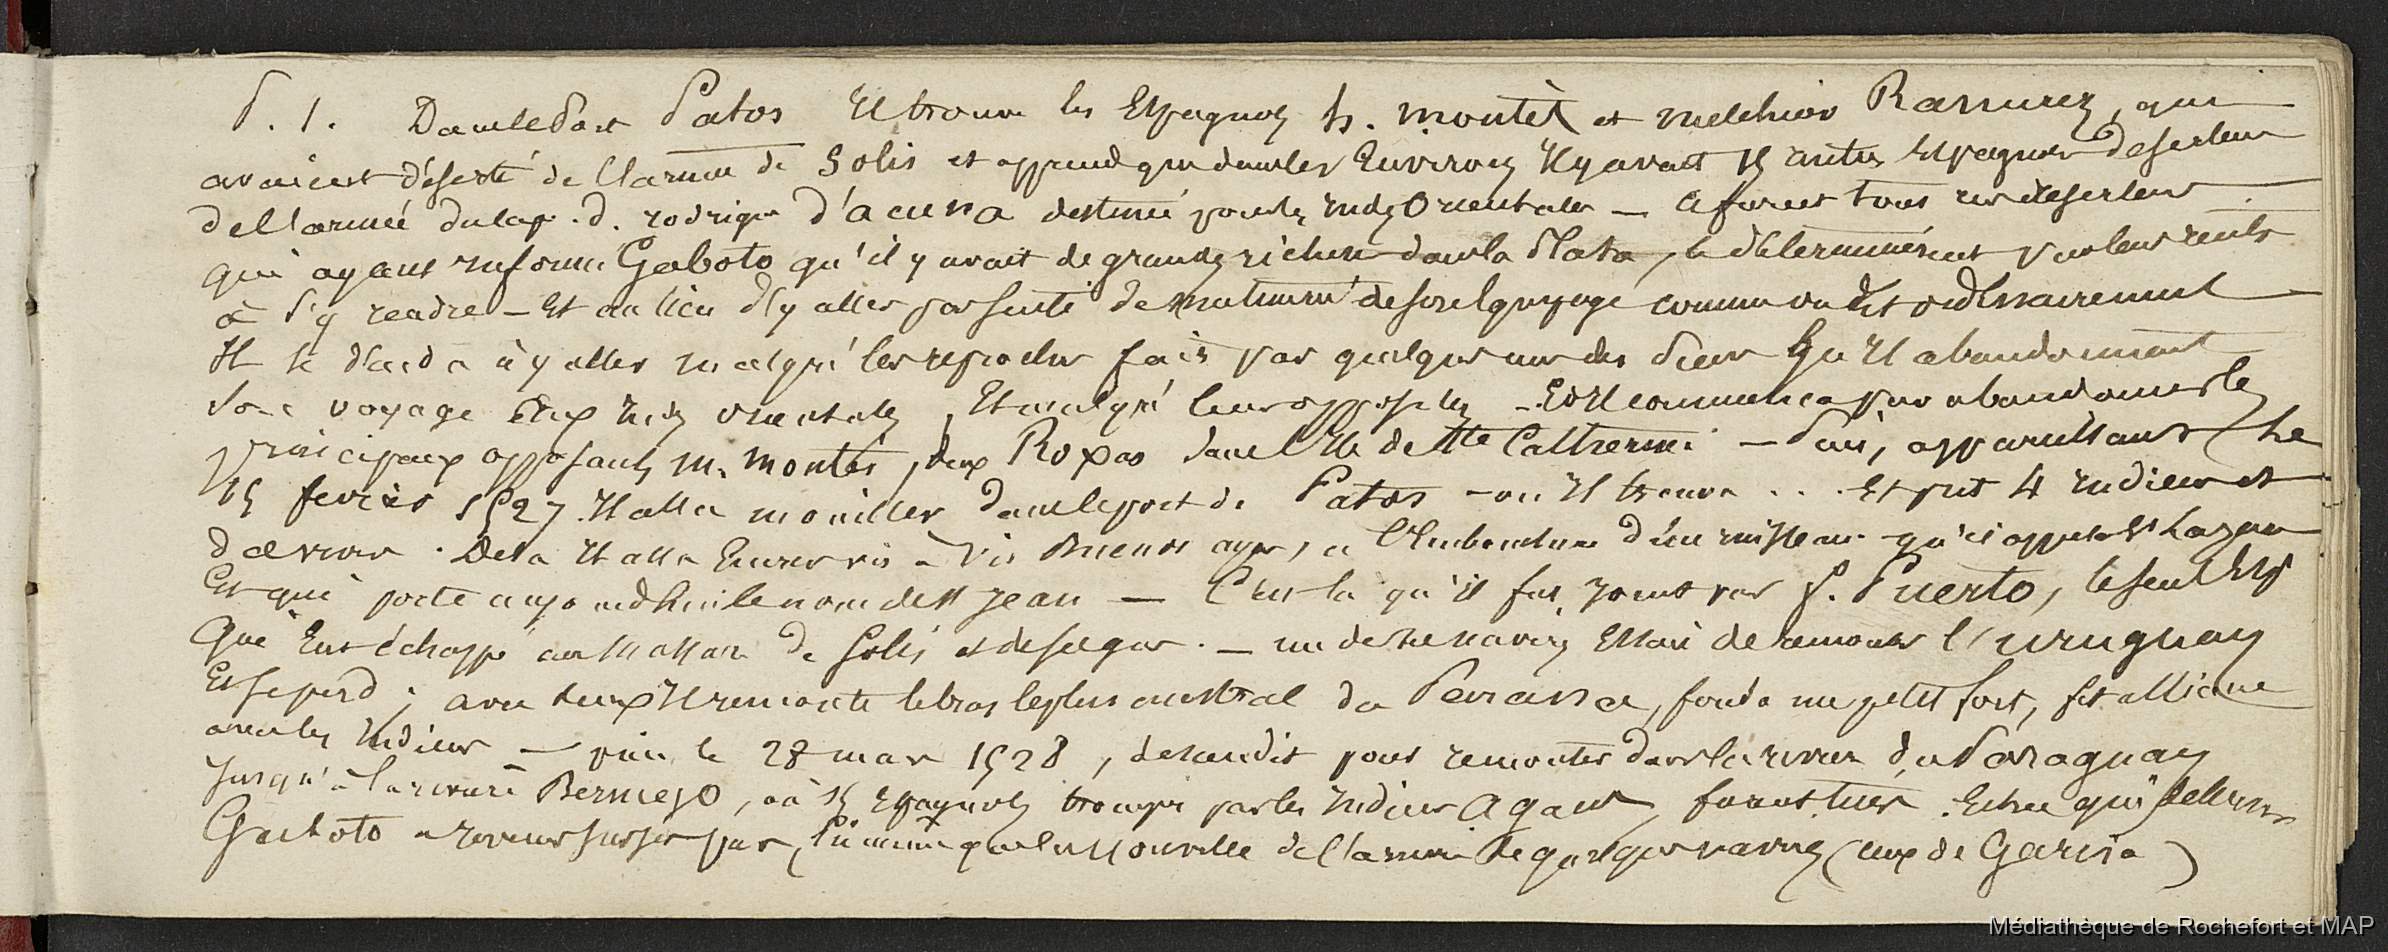 P. 1. Dans le Port Patos Il trouve les Espagnols h. montès et melchior Ramirez, qui
avaient déserté de l'armée de Solis et apprend que dans les Environs Il y avait 15 autres Espagnols deserteurs
de l'armée du cap. d. rodrigue d'acuna destiné pour les Indes Orientales — Ce furent tous ces deserteurs
qui ayant informé Gaboto qu'il y avait de grandes richesses dans la Plata, le déterminèrent par leurs récits
à s'y rendre — Et au lieu d'y aller par suite de mutinerie de son équipage comme on dit ordinairement
Il se décida à y aller malgré les reproches faits par quelques uns des siens qu'Il abandonnait
son voyage aux Indes orientales, Et malgré leurs — Et Il commença par abandonner les
principaux opposants M. Montés, deux Roxas dans l'Ile de Ste Catherine — Puis, appareillant le
15 fevrier 1527 Il alla mouiller dans le port de Patos — où Il trouva ... Et prit 4 Indiens et
des vivres. De là Il alla vis à vis Buenos ayres, à l'Embouchure d'un ruisseau qu'il appela St Lazare
Et qui porte aujourdhui le nom de St Jean — C'est là qu'il fut joint par f. Puerto, le seul Esp
Qui Eut échappé au Massacre de Solis et de ses gens. — un de ses navires Essaie de remonter l'uruguay
Et se perd; avec deux Il remonte le bras le plus austral du Parana, fonda un petit fort, fit alliance
avec les Indiens — puis le 28 mars 1528, descendit pour remonter dans la rivière du Paraguay
Jusqu'à la rivière Bermejo, où 15 Espagnols trompés par les Indiens Agaces furent tués. Echec qui détermine
Gaboto à revenir sur ses pas, ainsi que la Nouvelle de l'arrivée de quelques navires (ceux de Garcia)
Médiathèque de Rochefort et MAP